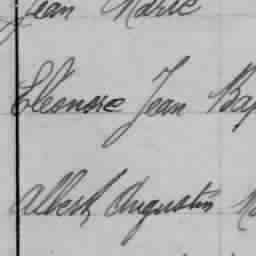 Jean Marie
Eléonore Jean Bap
Albert Augustin